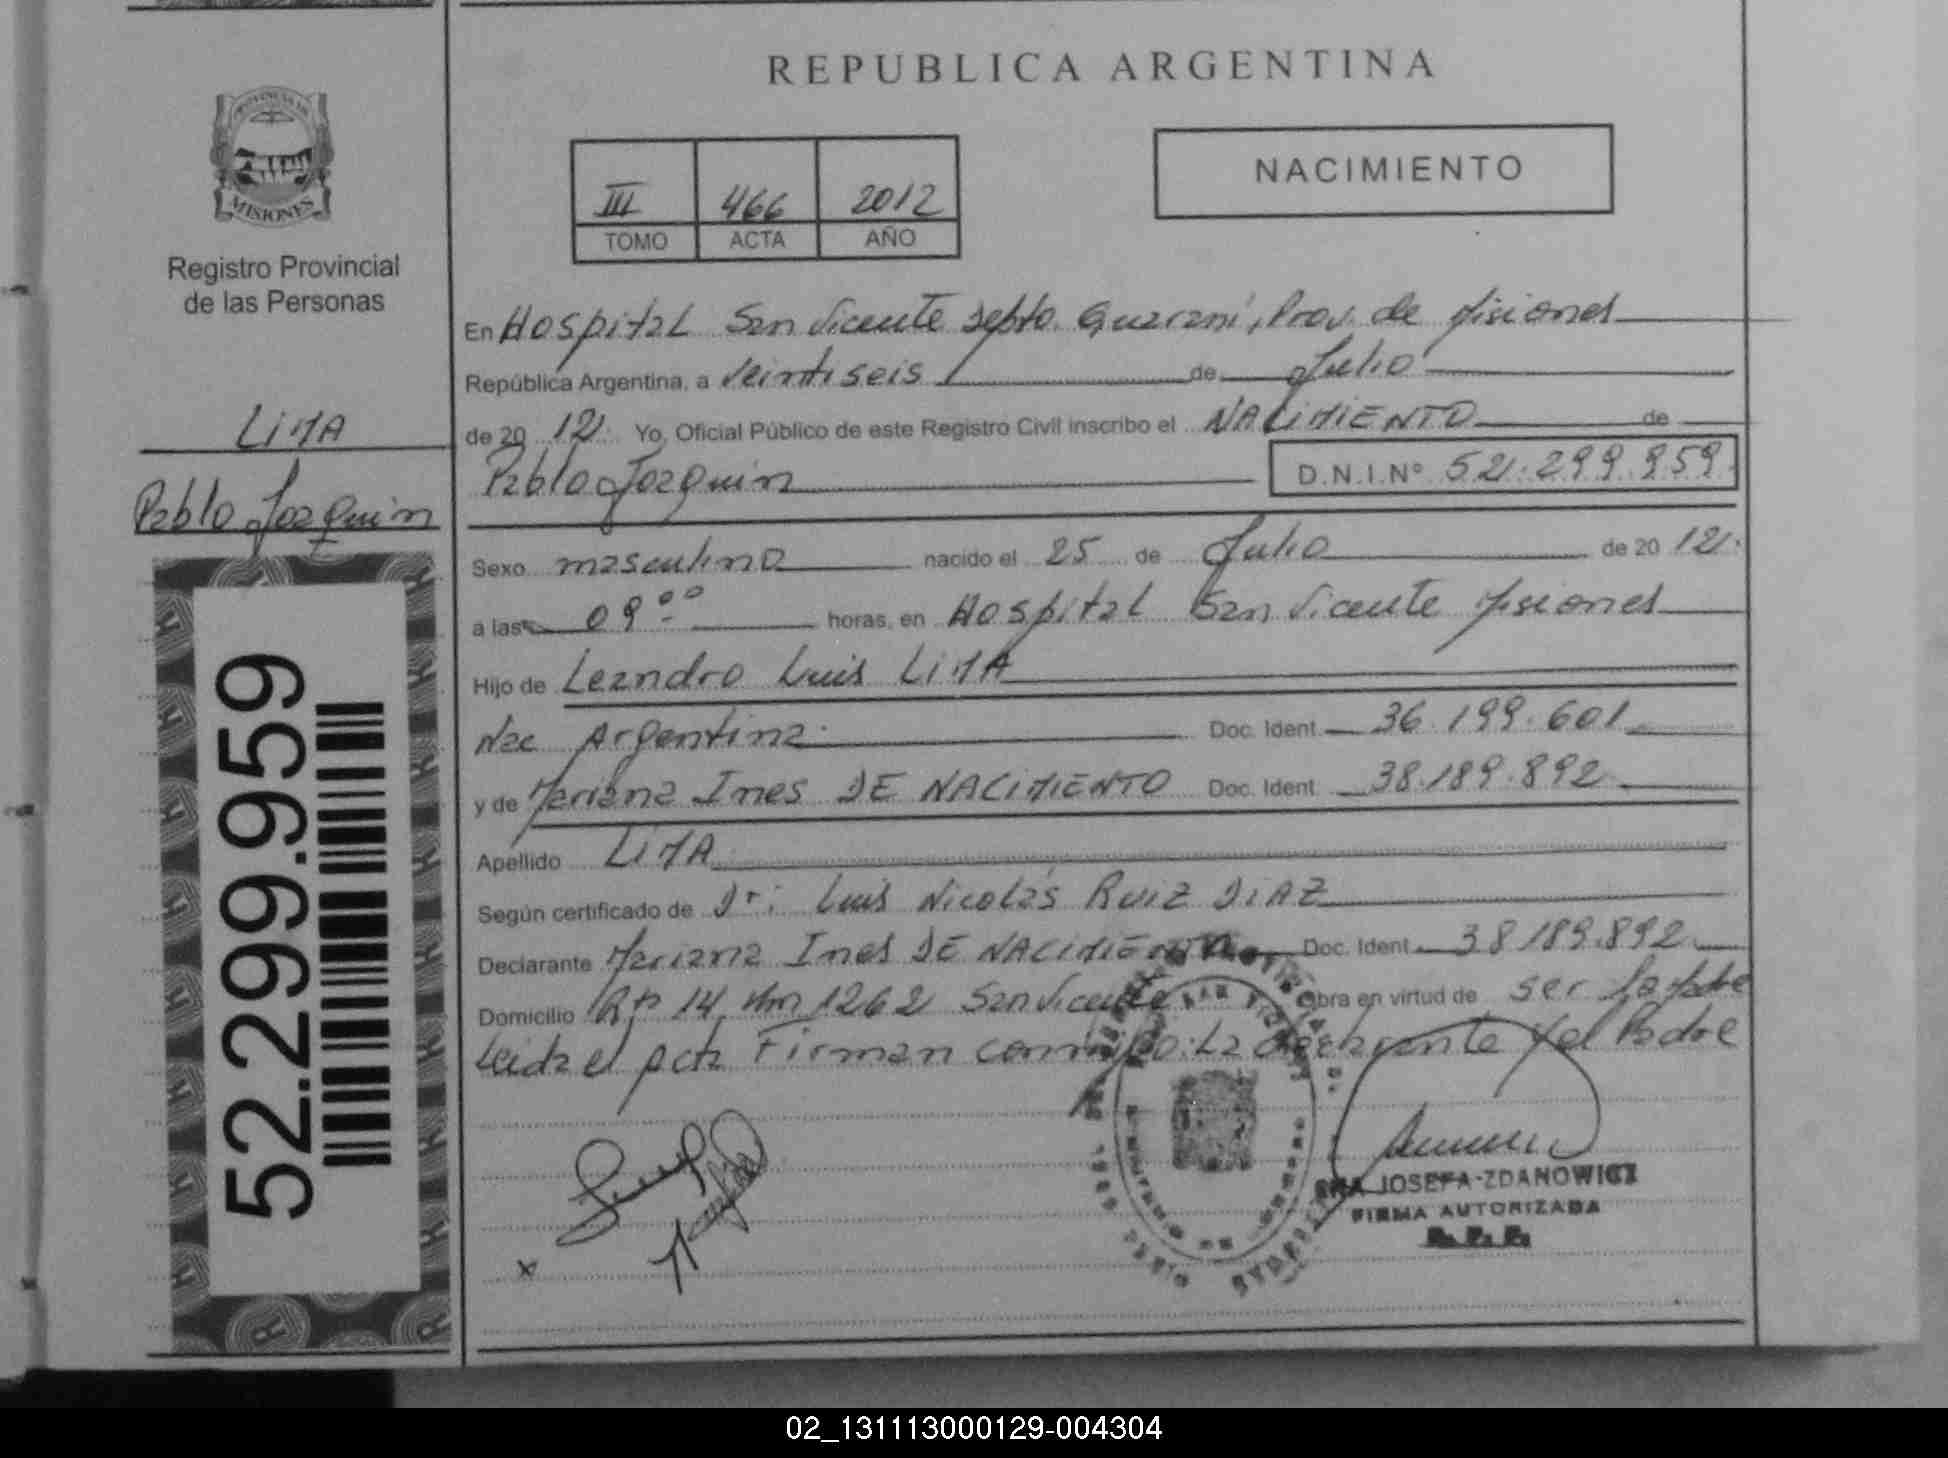 REPUBLICA ARGENTINA
PROVINCIA DE
MISIONES
Registro Provincial
de las Personas
LIMA
Pablo Joaquin
52.299.959
NACIMIENTO
III 466 2012
TOMO ACTA AÑO
En Hospital San Vicente Depto. Guaraní, Prov. de Misiones
República Argentina, a veintiseis de Julio
de 20 12 Yo, Oficial Público de este Registro Civil inscribo el NACIMIENTO de
Pablo Joaquin D.N.I.Nº 52.299.959
Sexo masculino nacido el 25 de Julio de 20 12
a las 09 00 horas, en Hospital San Vicente Misiones
Hijo de Leandro Luis LIMA
Nac Argentina Doc. Ident. 36.199.601
y de Mariana Ines DE NACIMIENTO Doc. Ident. 38.189.892
Apellido LIMA
Según certificado de Dr: Luis Nicolás Ruiz DIAZ
Declarante Mariana Ines DE NACIMIENTO Doc. Ident. 38.189.892
Domicilio Rp 14 Km 1262 San Vicente Obra en virtud de ser la Madre
Leida el acta Firman conmigo: La declarante y el Padre
x
JOSEFA ZDANOWICZ
FIRMA AUTORIZADA
R. P. P.
02_131113000129-004304